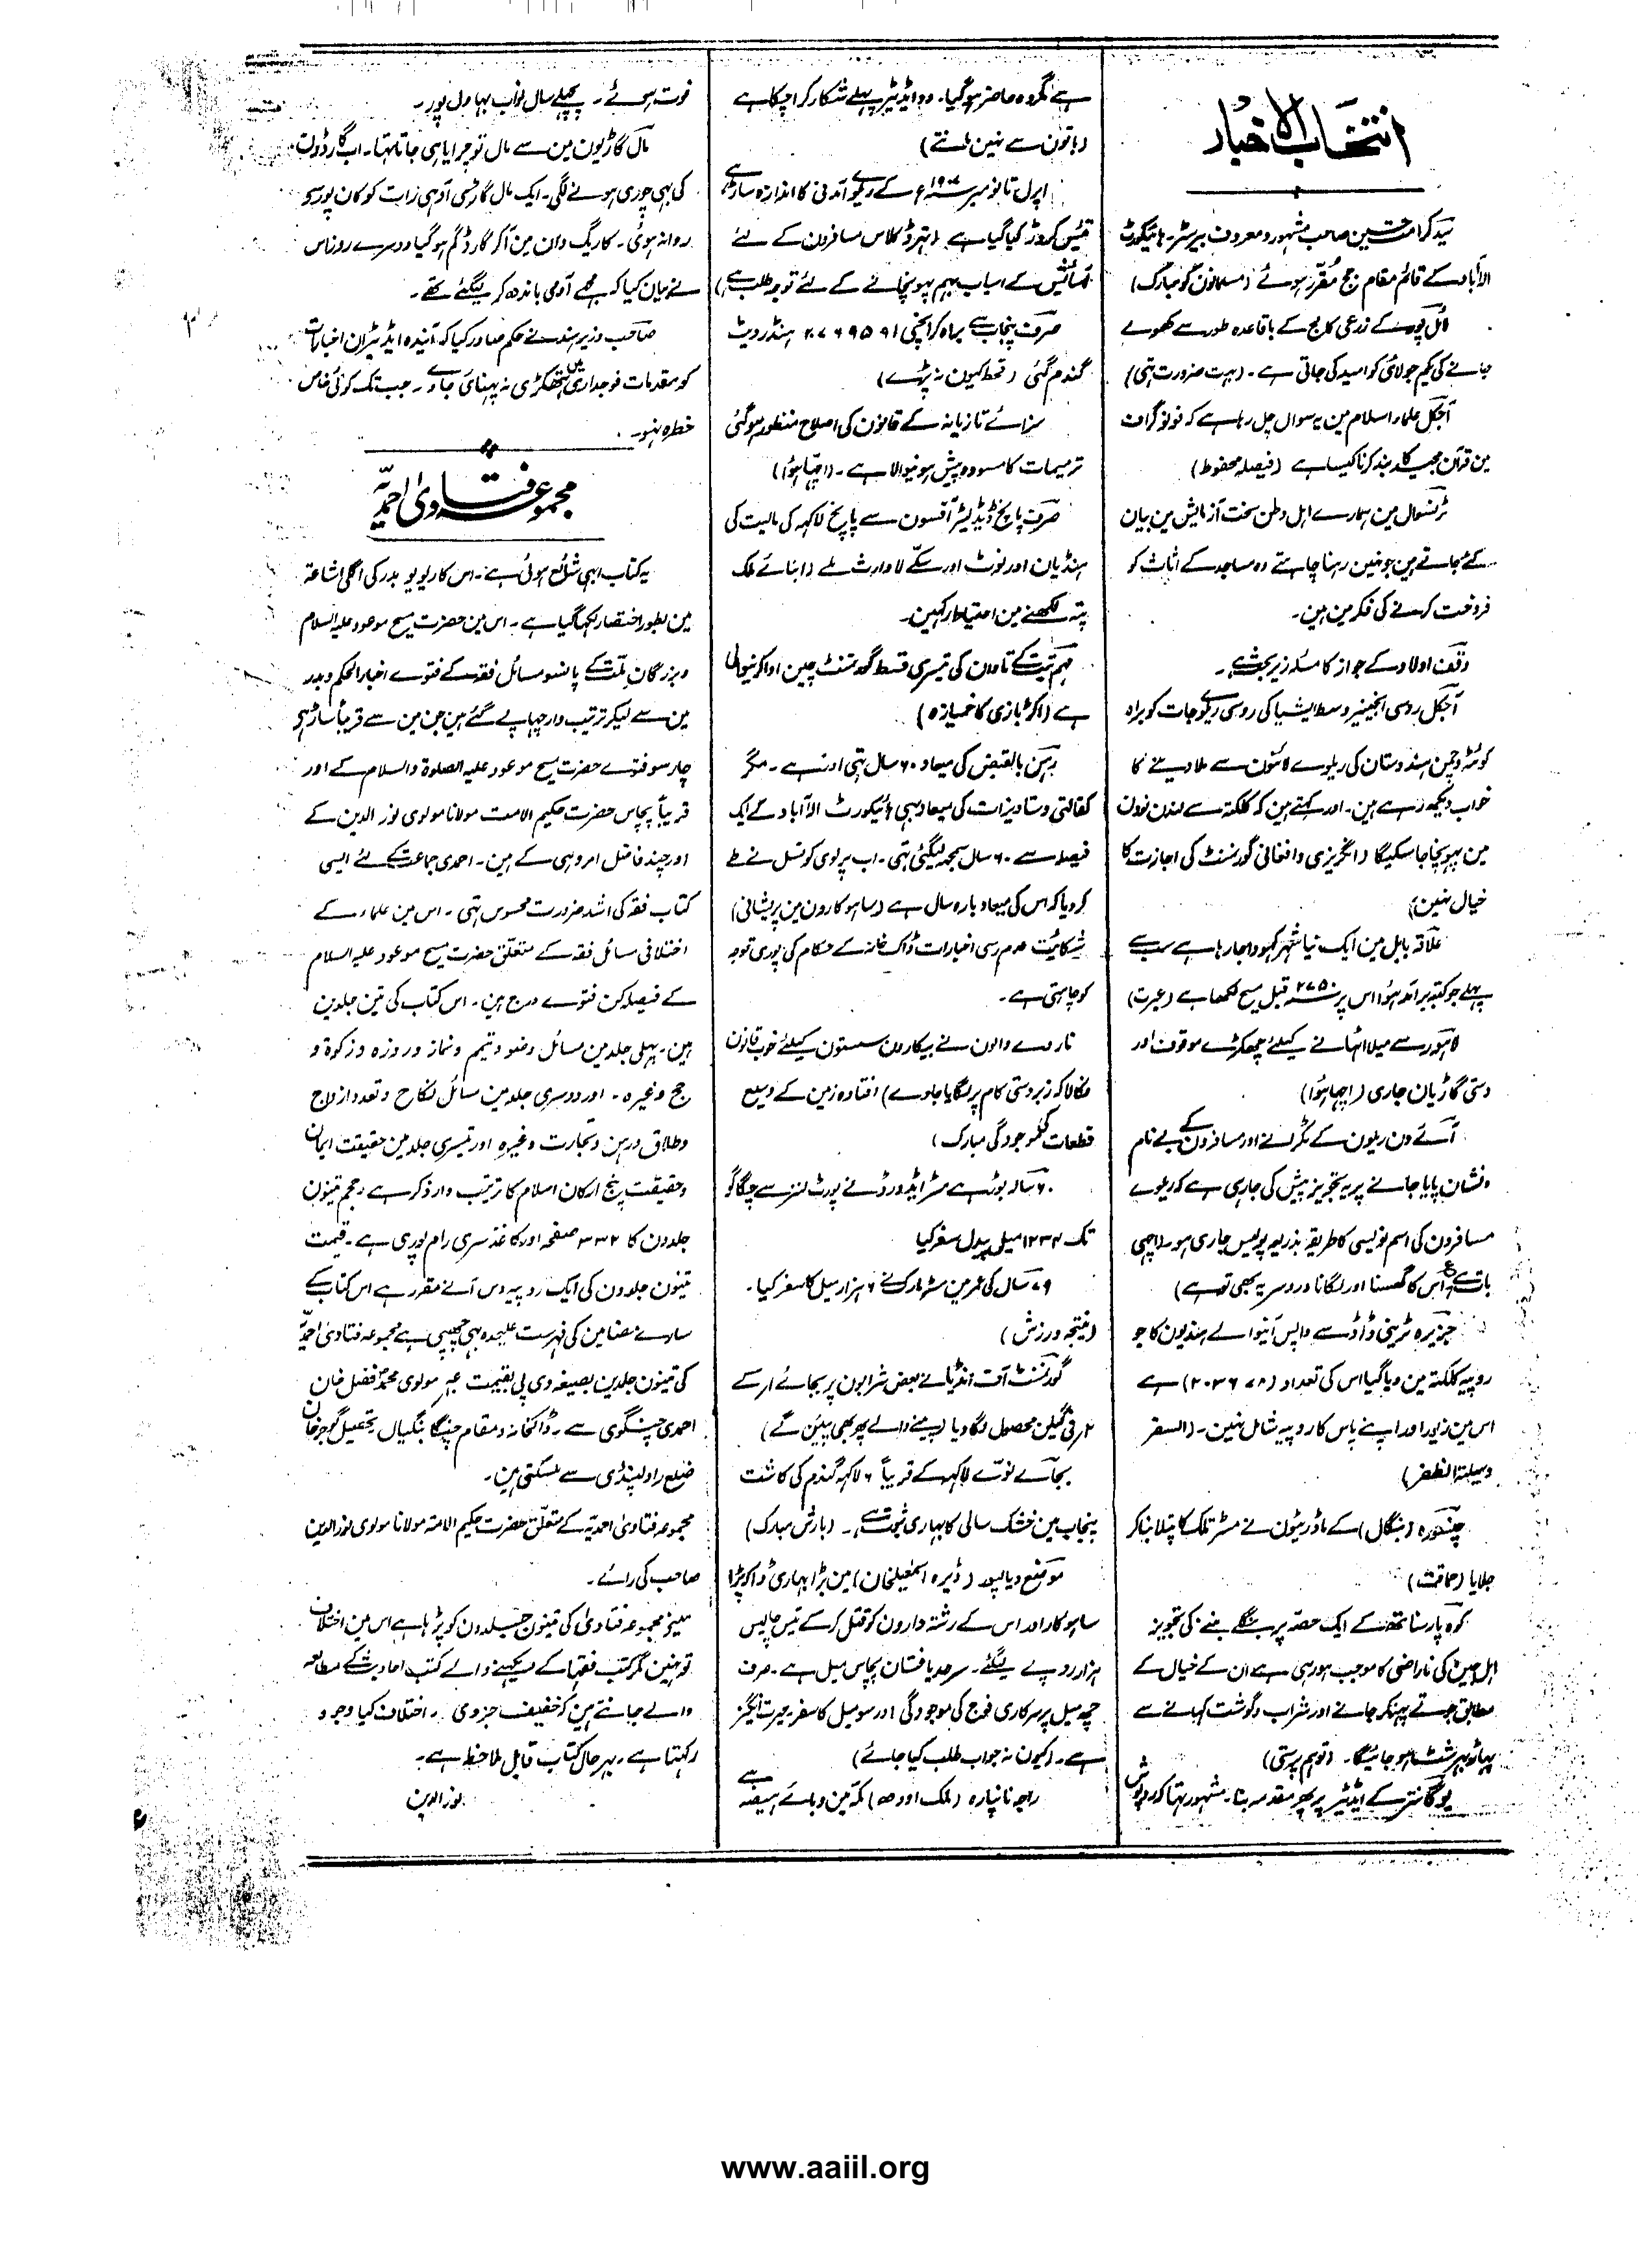 انتخاب الاخبار
سید کرامت حسین صاحب مشہور و معروف بیرسٹر۔ ہائیکورٹ
الہ آباد کے قائم مقام جج مقرر ہوئے (مسلمانوں کو مبارک)
لائل پور کے زرعی کالج کے باقاعدہ طور سے کھولے
جانے کی یکم جولائی کو امید کی جاتی ہے۔ (بہت ضرورت تہی)
آجکل علماء اسلام مین یہ سوال چل رہا ہے کہ فونوگراف
مین قرآن مجید کا بند کرنا کیسا ہے (فیصلہ محفوظ)
ٹرنسوال مین ہمارے اہل وطن سخت آزمایش مین بیان
کئے جاتے ہین جو نہین رہنا چاہتے وہ مساجد کے اثاث کو
فروخت کرنے کی فکر مین ہین۔
وقف اولاد کے جواز کا مسئلہ زیر بحث ہے۔
آجکل روسی انجینیر وسط ایشیا کی روسی ریلوے جات کو براہ
کوئٹہ و چمن ہندوستان کی ریلوے لائنون سے ملا دینے کا
خواب دیکھ رہے ہین۔ اور کہتے ہین کہ کلکتہ سے لندن نو دن
مین پہونچا جا سکیگا (انگریزی و افغانی گورنمنٹ کی اجازت کا
خیال نہین)
علاقہ بابل مین ایک نیا شہر کہودا جا رہا ہے سب سے
پہلے جو کتبہ برآمد ہوا اس پر ۲۷۵۰ قبل مسیح لکھا ہے (عبرت)
لاہور سے میلا اٹہانے کیلئے چھکڑے موقوف اور
دستی گاڑیان جاری (اچہا ہوا)
آئے دن ریلون کے ٹکرانے اور مسافرون کے بے نام
و نشان پایا جانے پر یہ تجویز پیش کی جا رہی ہے کہ ریلوے
مسافرون کی اسم نویسی کا طریقہ بذریعہ پولیس جاری ہو۔ (اچہی
بات ہے اس کا گھسنا اور لگانا درد سر یہ بھی تو ہے)
جزیرہ ٹرینی ڈاڈ سے واپس آنیوالے ہندیون کا جو
روپیہ کلکتہ مین دیا گیا اس کی تعداد (۲۰۳۶۷۸) ہے
اس مین زیور اور اپنے پاس کا روپیہ شامل نہین۔ (السفر
وسیلۃ الظفر)
چنسورہ (بنگال) کے ماڈریٹون نے مسٹر تلک کا پتلا بنا کر
جلایا (حماقت)
کوہ پارسناتھ کے ایک حصہ پر بنگلے بننے کی تجویز
اہل جین کی ناراضی کا موجب ہو رہی ہے ان کے خیال کے
مطابق جوتے پہنکر جانے اور شراب و گوشت کہانے سے
پہاڑ بہرشٹ ہو جائیگا۔ (توہم پرستی)
یوگانتر کے ایڈیٹر پر پھر مقدمہ بنا۔ مشہور تہا کہ روپوش
ہے مگر وہ حاضر ہو گیا۔ دو ایڈیٹر پہلے شکار کرا چکا ہے
(باتون سے نہین ملتے)
اپریل تا نومبر ۱۹۰۷ء کے ریلوے آمدنی کا اندازہ ساڑھے
تیئس کروڑ کیا گیا ہے (تہرڈ کلاس مسافرون کے لئے
آسائش کے اسباب بہم پہونچانے کے لئے توجہ طلب ہے)
صرف پنجاب سے براہ کراچی ۲۰۷۶۹۵۹۱ ہنڈرویٹ
گندم گئی (قحط کیون نہ پڑے)
سزائے تازیانہ کے قانون کی اصلاح منظور ہو گئی
ترمیمات کا مسودہ پیش ہونیوالا ہے۔ (اچہا ہوا)
صرف پانچ ڈیڈ لیٹر آفسون سے پانچ لاکہہ کی مالیت کی
ہنڈیان اور نوٹ اور سکے لاوارث ملے (ابنائے ملک
پتہ لکھنے مین احتیاط رکہین۔
مہم تبت کے تاوان کی تیسری قسط گورنمنٹ چین ادا کرنیوالی
ہے (اکڑ بازی کا خمیازہ)
رہن بالقبض کی میعاد ۶۰ سال تہی اور ہے۔ مگر
کفالتی دستاویزات کی میعاد بہی ہائیکورٹ الہ آباد کے ایک
فیصلہ سے ۶۰ سال سمجہ لیگئی تہی۔ اب پریوی کونسل نے طے
کر دیا کہ اس کی میعاد بارہ سال ہے (ساہوکارون مین پریشانی)
شکائیت عدم رسی اخبارات ڈاک خانہ کے حکام کی پوری توجہ
کو چاہتی ہے۔
ناروے والون نے بیکارون سستون کیلئے خوب قانون
نکالا کہ زبردستی کام پر لگایا جاوے) افتادہ زمین کے وسیع
قطعات کی موجودگی مبارک)
۶۰ سالہ بوڑہے مسٹر ایڈورڈ نے پورٹ لنز سے چیکاگو
تک ۱۲۳۴ میل پیدل سفر کیا
۷۹ سال کی عمر مین مسٹر ہارک نے ۶ ہزار میل کا سفر کیا۔
(نتیجہ ورزش)
گورنمنٹ آف انڈیا نے بعض شرابون پر بجائے ۱ر کے
۲ر فی گیلن محصول لگا دیا (پینے والے پھر بھی پیئن گے)
بجائے نوے لاکہہ کے قریباً ۶ لاکہہ گندم کی کاشت
پنجاب مین خشک سالی کا بہاری ثبوت ہے۔ (بارش مبارک)
موضع دیالپور (ڈیرہ اسمعیلخان) مین بڑا بہاری ڈاکہ پڑا
ساہوکار اور اس کے رشتہ دارون کو قتل کر کے تیس چالیس
ہزار روپے لیگئے۔ سرحد یاغستان پچاس میل ہے۔ صرف
چھ میل پر سرکاری فوج کی موجودگی اور سو میل کا سفر۔ حیرت انگیز
ہے۔ (کیون نہ جواب طلب کیا جائے)
راجہ نانپارہ (ملک اودھ) مکہ مین وبائے ہیضہ سے
فوت ہوئے۔ پچھلے سال نواب بہاول پور۔
مال گاڑیون مین سے مال تو چرایا ہی جاتا تہا۔ اب گارڈون
کی بہی چوری ہونے لگی۔ ایک مال گاڑی آدہی رات کو کان پور سے
روانہ ہوئی۔ کاریگ وان مین آکر گارڈ گم ہو گیا دوسرے روز اس
نے بیان کیا کہ مجھے آدمی باندھ کر لیگئے تھے۔
صاحب وزیر ہند نے حکم صادر کیا کہ آئندہ ایڈیٹران اخبارات
کو مقدمات فوجداری مین ہتھکڑی نہ پہنائی جاوے۔ جب تک کوئی خاص
خطرہ نہو۔
مجموعہ فتاویٰ احمدیہ
یہ کتاب ابہی شائع ہوئی ہے۔ اس کا ریویو بدر کی اگلی اشاعۃ
مین بطور اختصار لکہا گیا ہے۔ اس مین حضرت مسیح موعود علیہ السلام
و بزرگان ملت کے پانسو مسائل فقہ کے فتوے اخبار الحکم و بدر
مین سے لیکر ترتیب وار چہاپے گئے ہین جن مین سے قریباً ساڑہے
چار سو فتوے حضرت مسیح موعود علیہ الصلوۃ والسلام کے اور
قریباً پچاس حضرت حکیم الامت مولانا مولوی نور الدین کے
اور چند فاضل امروہی کے ہین۔ احمدی جماعت کے لئے ایسی
کتاب فقہ کی اشد ضرورت محسوس تہی۔ اس مین علماء کے
اختلافی مسائل فقہ کے متعلق حضرت مسیح موعود علیہ السلام
کے فیصلہ کن فتوے درج ہین۔ اس کتاب کی تین جلدین
ہین۔ پہلی جلد مین مسائل وضو و تیمم و نماز و روزہ و زکوۃ و
حج وغیرہ۔ اور دوسری جلد مین مسائل نکاح و تعدد ازواج
و طلاق و رہن و تجارت وغیرہ اور تیسری جلد مین حقیقت ایمان
و حقیقت پنج ارکان اسلام کا ترتیب وار ذکر ہے۔ حجم تینون
جلدون کا ۳۳۲ صفحہ اور کاغذ سری رام پوری ہے۔ قیمت
تینون جلدون کی ایک روپیہ دس آنے مقرر ہے اس کتاب کے
سارے مضامین کی فہرست علیحدہ بہی چھپی ہے مجموعہ فتاویٰ احمدیہ
کی تینون جلدین بصیغہ وی پی بقیمت عہ مولوی محمد فضل خان
احمدی چنگوی سے۔ ڈاکخانہ و مقام چنگا بنگیال تحصیل گوجرخان
ضلع راولپنڈی سے مل سکتی ہین۔
مجموعہ فتاویٰ احمدیہ کے متعلق حضرت حکیم الامۃ مولانا مولوی نور الدین
صاحب کی رائے۔
مینے مجموعہ فتاویٰ کی تینون جلدون کو پڑہا ہے اس مین اختلاف
تو نہین مگر کتب فقہا کے دیکہنے والے کتب احادیث کے مطالعہ
والے جانتے ہین کہ خفیف جزوی۔ اختلاف کیا وجود
رکہتا ہے۔ بہر حال کتاب قابل ملاحظہ ہے۔
نور الدین
www.aaiil.org